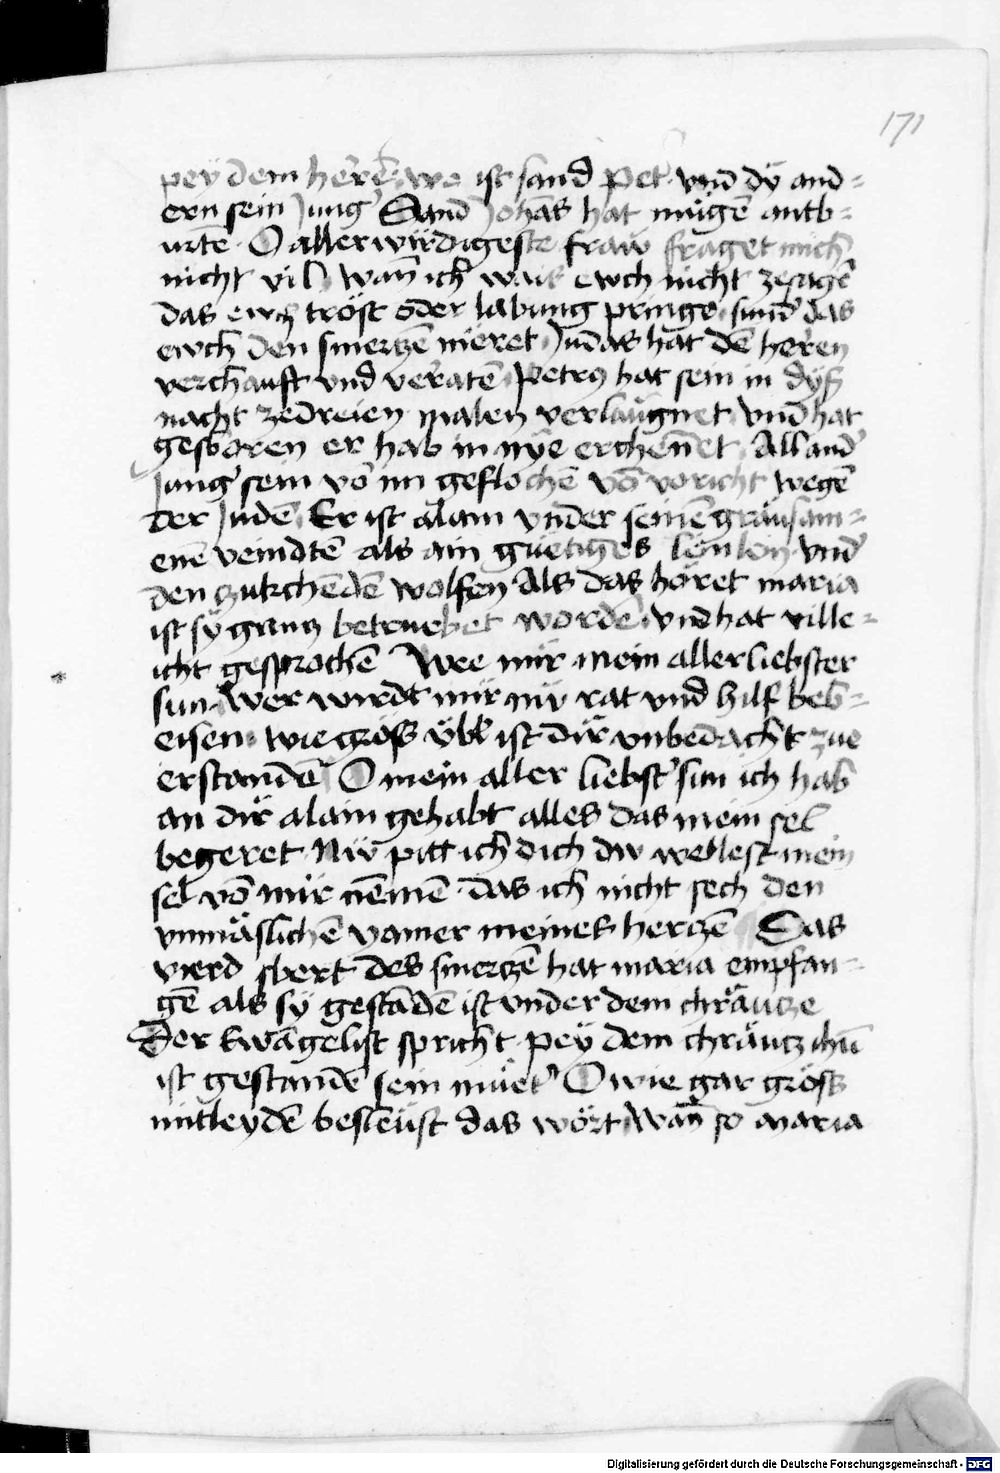 171
pey dem herrē we ist sand pet' vnd dÿ and=
ern sein Jung' Sand Johās hat mügē antb=
urtē · O aller wirdigeste fraw fraget mich
nicht vil wan̄ ich wais ewch nicht zesagē
das ewch tröst oder labung pringe sund' das
ewch den smertzē meret · Judas hat dē herren
verchauft vnd verratē Petrus hat sein in dyser
nacht ze dreien malen verlaugnet vnd hat
gesboren er hab in nye erchennet All and'
Jung' sein vō im geflochē vō voricht wegē
der Judē Er ist alain vnder seinē gräusam=
enē veindtē als ain güetiges lemlein vnd'
den zukchēdē wolfen Als das höret maria
ist sÿ gantz betruebet wordē vnd hat ville=
icht gesprochē Wee mir mein aller liebster
sun wer wirdt mir nw rat vnd hilf beb=
eisen · wie gröss übl ist dir vnbedacht zue
erstandē O mein aller liebst' sun ich hab
an dir alain gehabt alles das mein sel
begeret Nw pitt ich dich dw wellest mein
sel vō mir nemē · das ich nicht sech den
vnmäslichē yamer meines hertzē Das
vierd sbert des smertzē hat maria empfan=
gē als sÿ gestādē ist vnder dem chräutze
Der Ewāgelist spricht · pey dem chräutz ihū
ist gestandē sein muet' O wie gar gröss
mitleydē besleust das wört wan̄ so maria
Digitalisierung gefördert durch die Deutsche Forschungsgemeinschaft - DFG